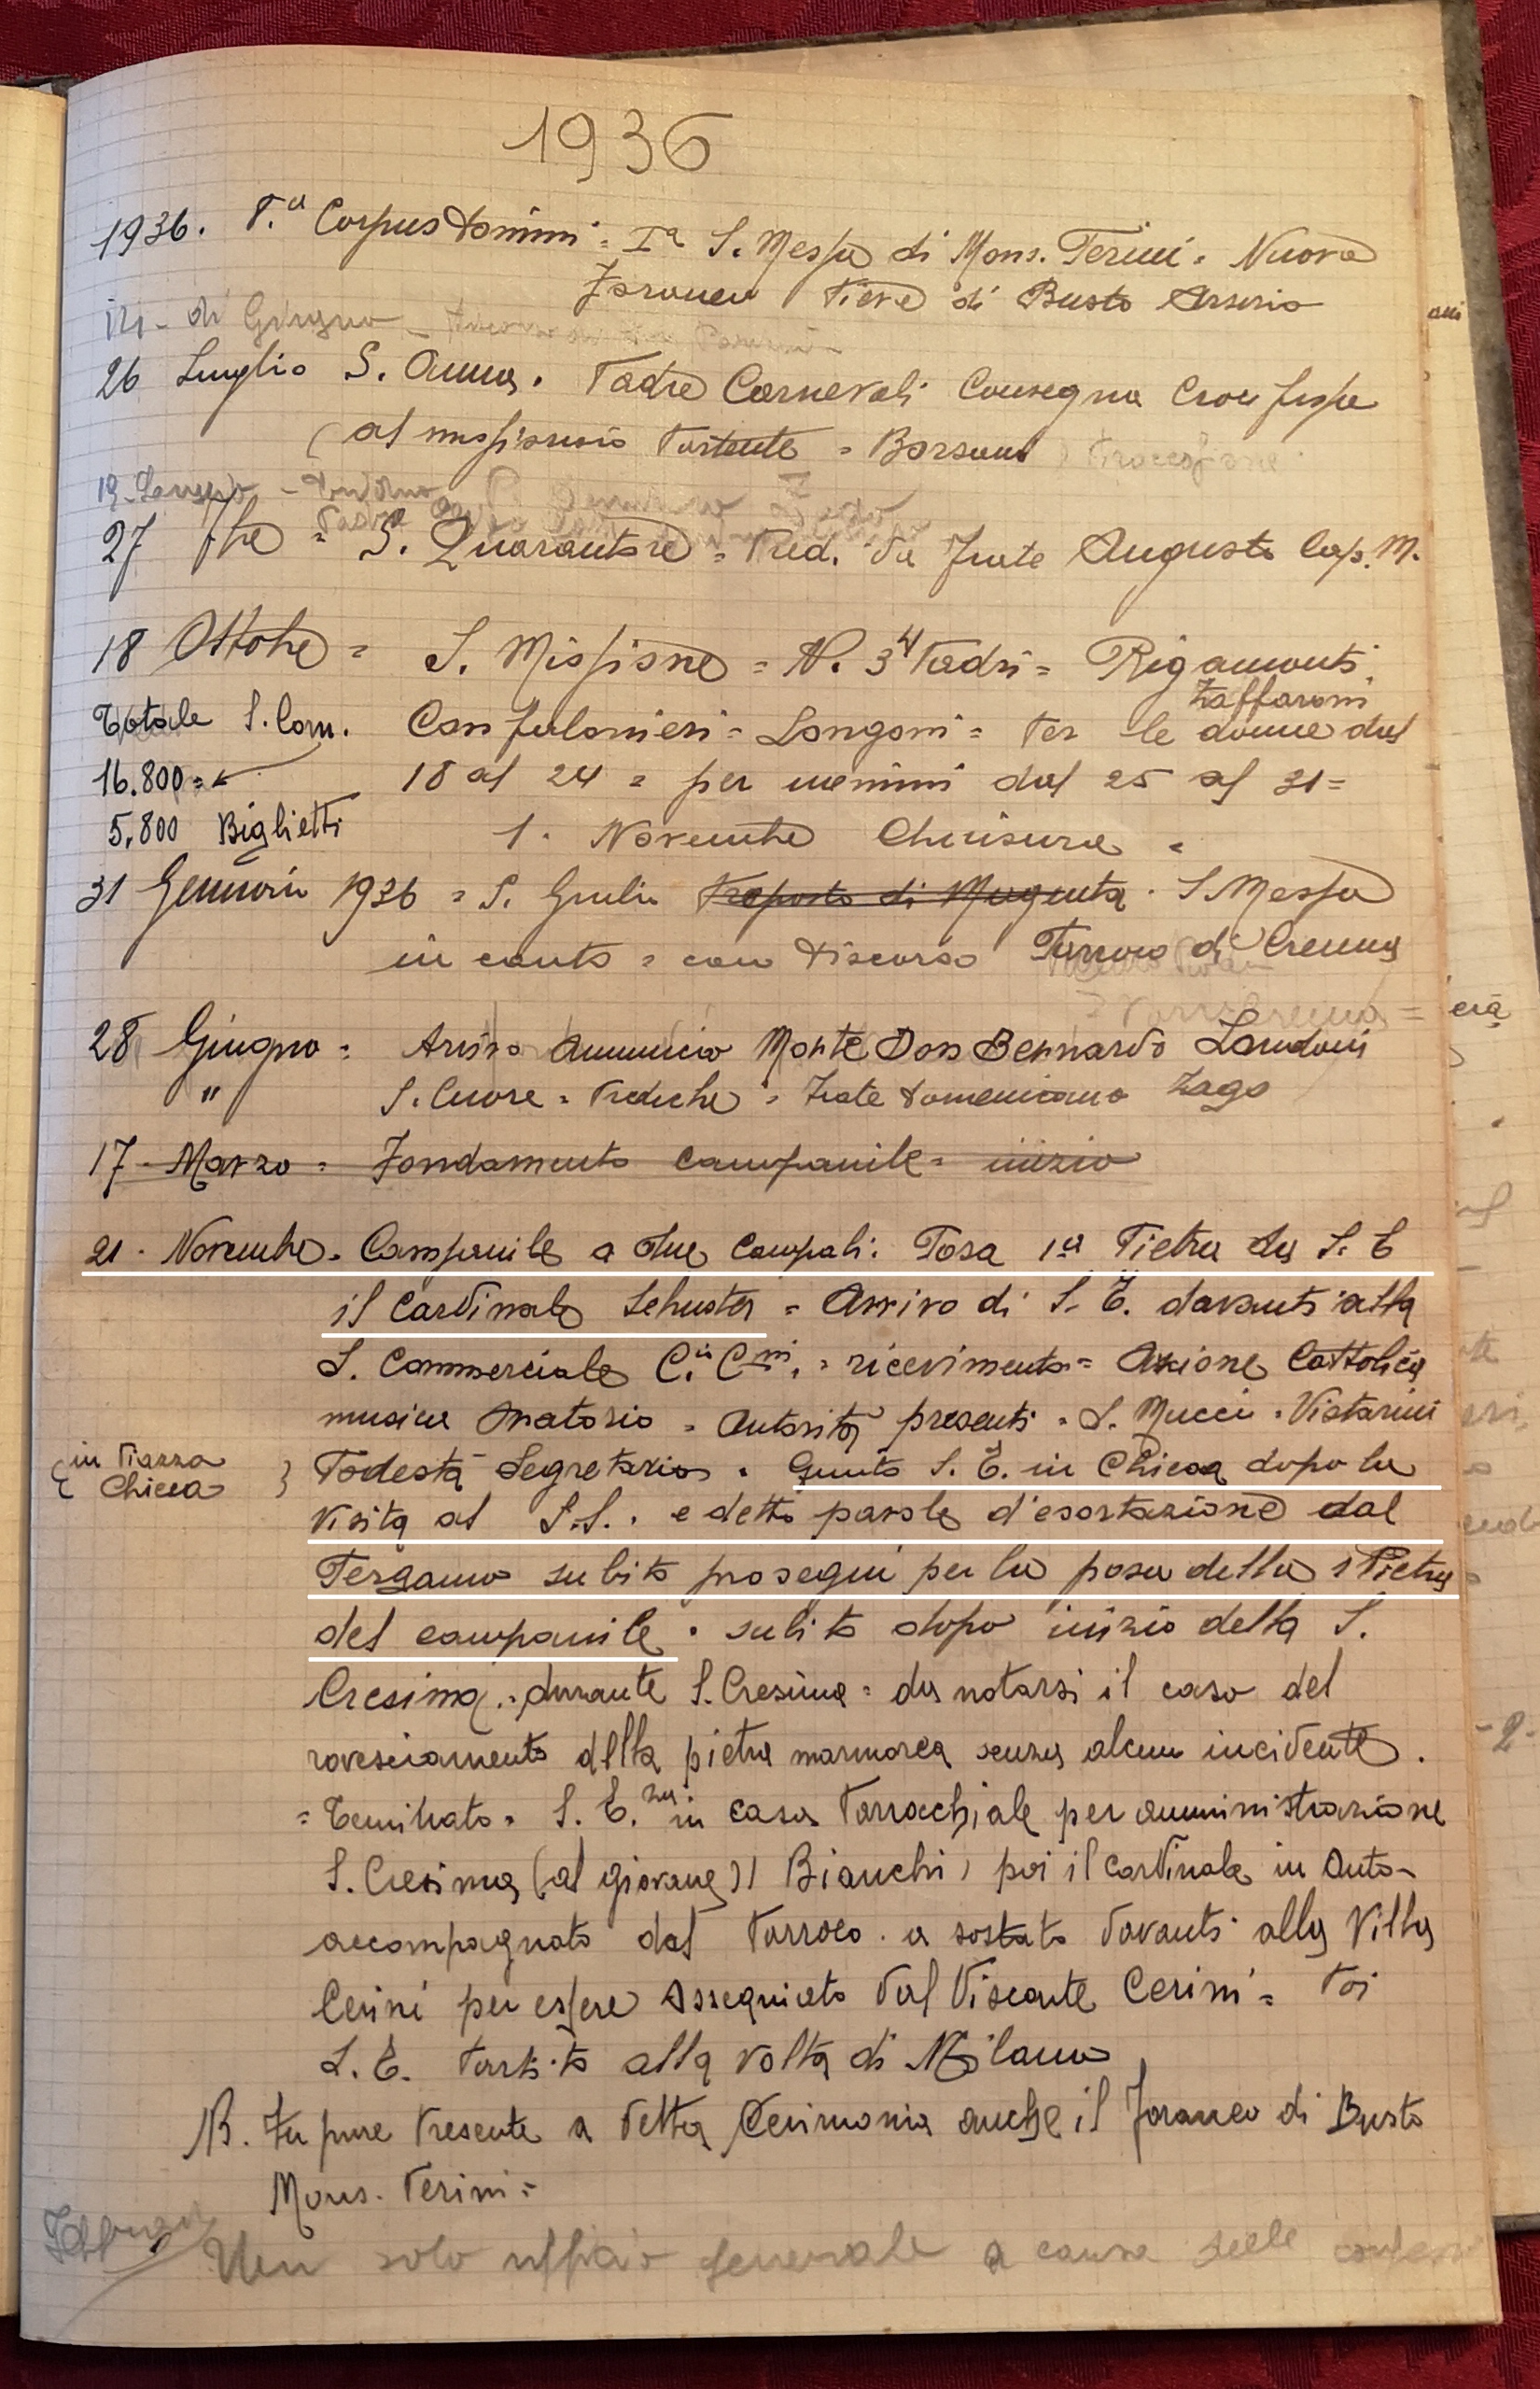 1936
1936. P.a Corpus Domini = Ia S. Messa di Mons. Perini = Nuovo
Foraneo Pieve di Busto Arsizio
di Giugno
26 Luglio S. Anna. Padre Carnevali Consegna Crocifisso
(al missionario Partente = Borsani) Processione
27 7bre = S. Quarantore = Pred. da Frate Augusto Cap. M.
18 Ottobre = S. Missione = N. 3 4 Padri = Rigamonti
Zaffaroni
Totale S. Com. Confalonieri = Longoni = Per le donne dal
16.800 = 18 al 24 = per uomini dal 25 al 31 =
5.800 Biglietti 1. Novembre Chiusura =
31 Gennaio 1936 = S. Giulio Preposto di Magenta. S. Messa
in canto = con discorso Parroco di Cremna
28 Giugno = Arrivo Annuncio Morte Don Bernardo Landoni
" S. Cuore = Prediche = Frate domenicano Zago
17 Marzo = Fondamento campanile = inizio
21. Novembre = Campanile a due Campali: Posa 1a Pietra da S. E
il Cardinale Schuster = Arrivo di S. E. davanti alla
S. Commerciale = ricevimento = Azione Cattolica
musica Oratorio = Autorità presenti = S. Mucci = Vistarini
{ in Piazza Chiesa } Podestà Segretario. Giunto S. E. in Chiesa dopo la
visita al S.S.. e dette parole d'esortazione dal
Pergamo subito proseguì per la posa della 1 Pietra
del campanile. subito dopo inizio della S.
Cresima. = durante S. Cresima = da notarsi il caso del
rovesciamento della pietra marmorea senza alcun incidente.
= Terminato = S. E.za in casa Parrocchiale per amministrazione
S. Cresima (al giovane) Bianchi) poi il cardinale in Auto-
accompagnato dal Parroco. a sostato davanti alla Villa
Cerini per essere ossequiato dal Visconte Cerini = Poi
S. E. Partito alla volta di Milano
NB. Fu pure Presente a detta Cerimonia anche il Foraneo di Busto
Mons. Perini =
Un solo uffizio generale a causa delle